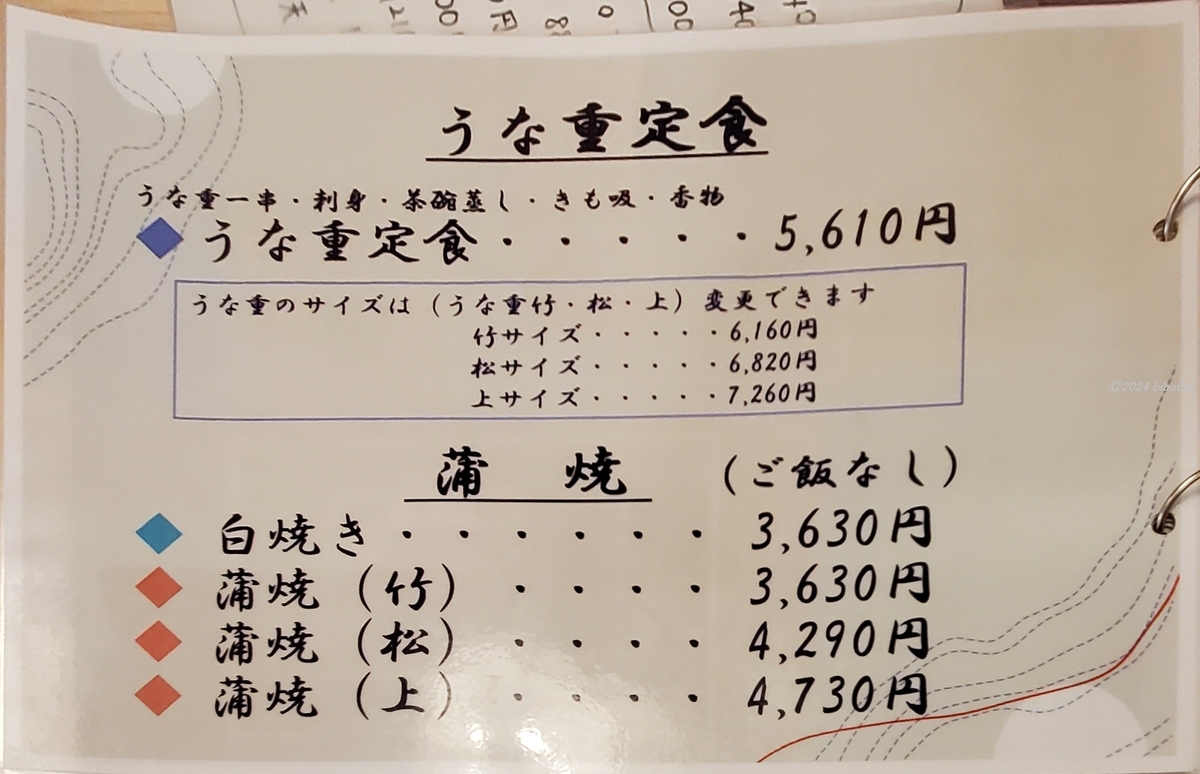 うな重定食
うな重一串・刺身・茶碗蒸し・きも吸・香物
うな重定食・・・・・5,610円
うな重のサイズは（うな重竹・松・上）変更できます
竹サイズ・・・・・6,160円
松サイズ・・・・・6,820円
上サイズ・・・・・7,260円
蒲　焼　（ご飯なし）
白焼き・・・・・・3,630円
蒲焼（竹）・・・・3,630円
蒲焼（松）・・・・4,290円
蒲焼（上）・・・・4,730円
©2024